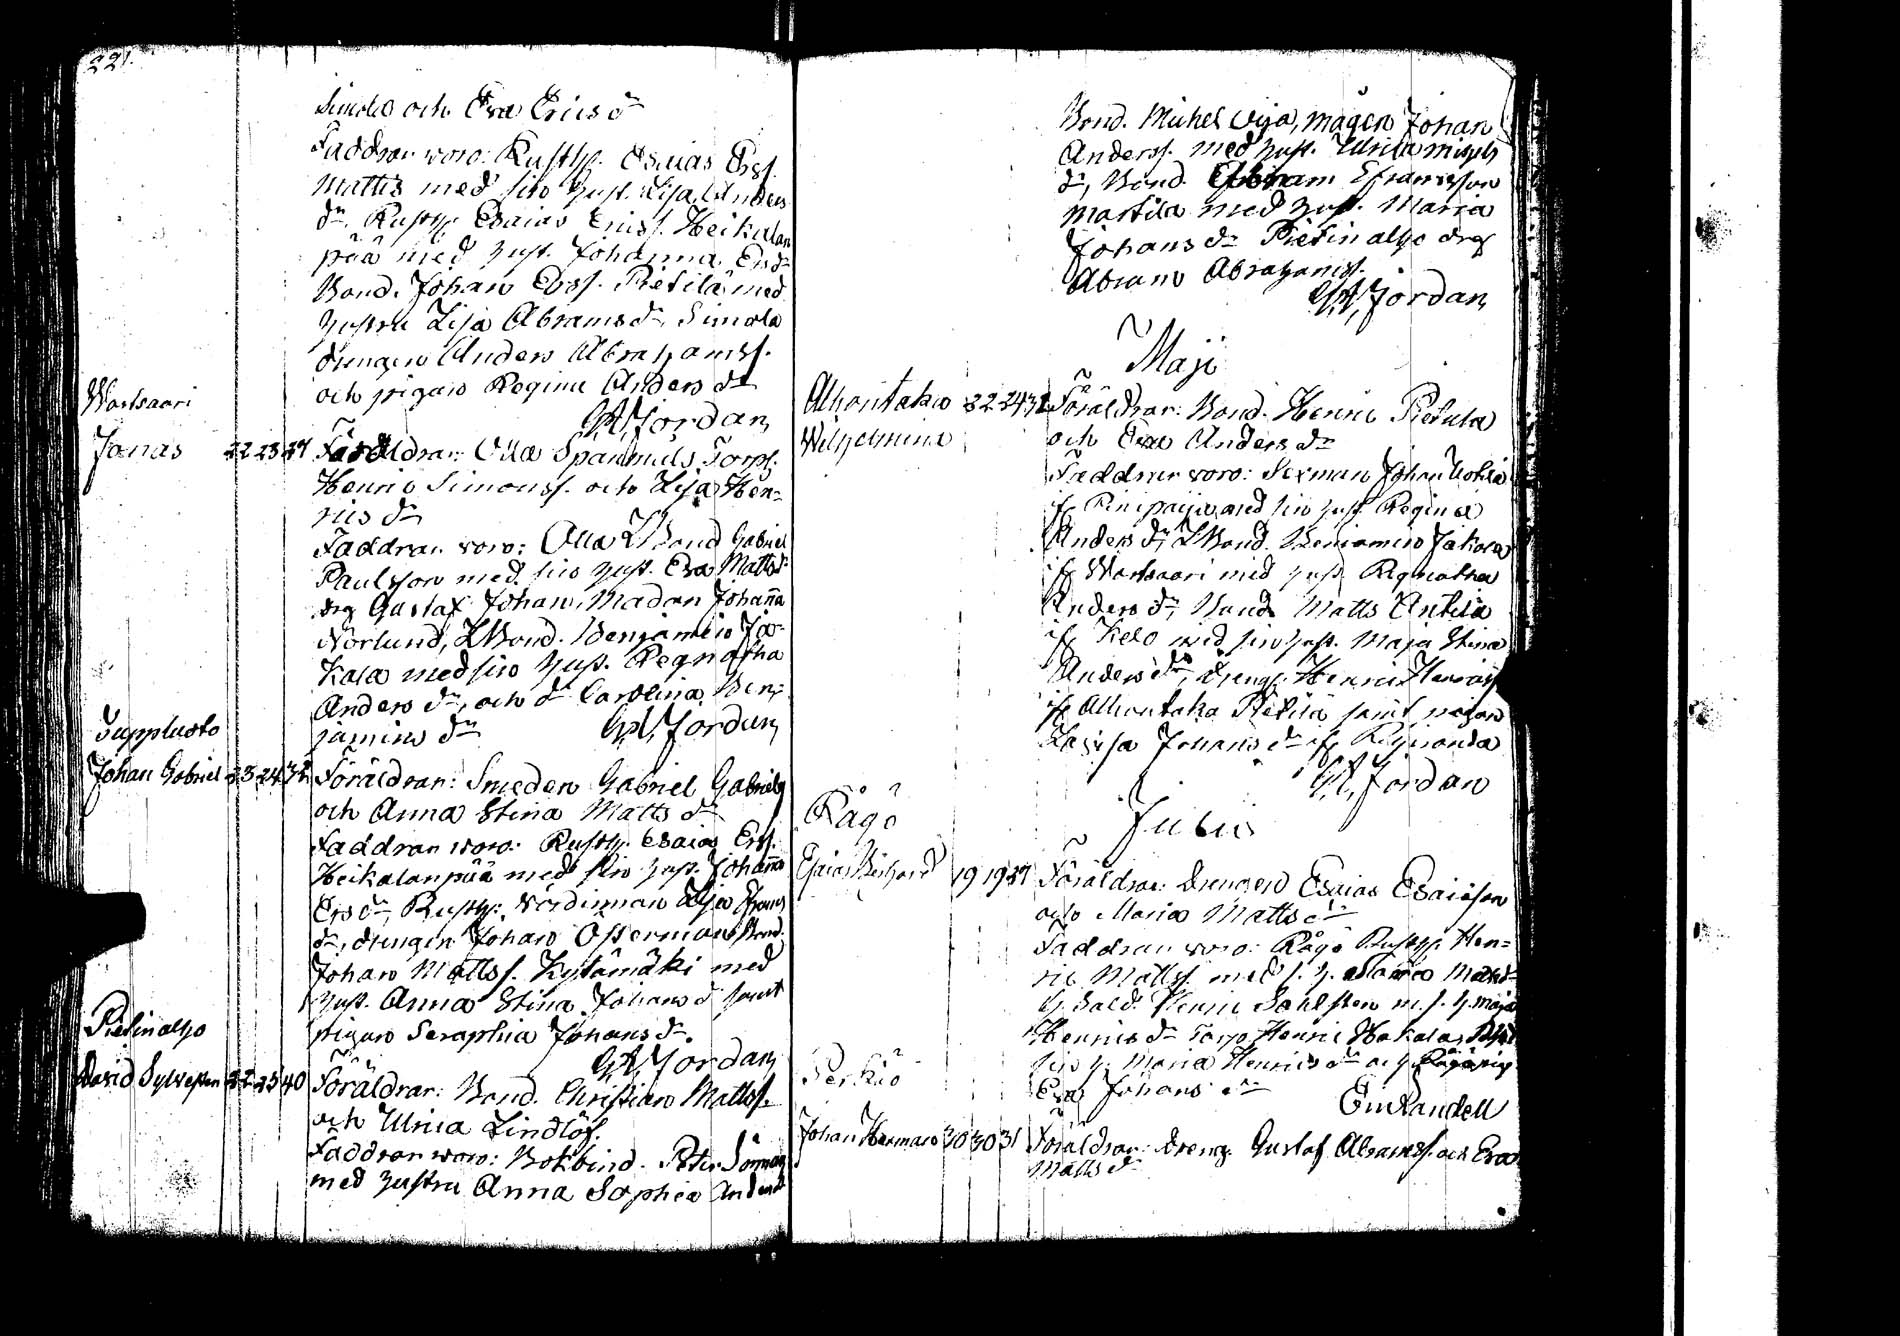 221.
Simola och Eva Erics dr
Faddrar voro: Rusth. Esaias Ersf.
Mattis med sin hust. Lisa Anders
dr. Rusth. Esaias Ericsf. Heikalan
pää med hust. Johanna Ersdr
Bond. Johan Ersf. Pietilä med
hustru Lisa Abramsdr, Simola
drengen Anders Abrahamsf.
och pigan Regina Andersdr
GA Jordan
Wartsaari
Jonas 22 23 27 Föräldrar: Olla Spanmils Torp.
Henric Simonsf. och Lisa Hen=
rics dr
Faddrar voro: Olla LBond Gabriel
Paulsson med sin hust. Eva Mattsdr
drg Gustaf Johan, Madam Johaña
Norlund, LBond. Benjamin Ja=
kala med sin hust. Regnatha
Anders dr, och dr Carolina Ben=
jamins dr GA Jordan
Tupplusto
Johan Gabriel 23 24 32 Föräldrar: Smeden Gabriel Gabrielsf
och Anna Stina Matts dr
Faddrar voro: Rusth. Esaias Ersf.
Heikalanpää med sin hust. Johaña
Ers dr, Rusth. värdinnan Lisa Efraims
dr, drengen Johan Österman Bond.
Johan Mattsf. Kylämäki med
hust. Anna Stina Johans dr samt
pigan Seraphia Johans dr.
GA Jordan
Pietinalho
David Sylvesten 22 23 40 Föräldrar: Bond. Christian Mattsf.
och Ulrica Lindlöf.
Faddrar voro: Bokbind. Peter
med hustru Anna Sophia Andersdr
Bond. Michel Uja, mågen Johan
Andersf. med hust. Ulrica Michels
dr, Bond. Efraim Efraimsson
Martila med hust. Maria
Johans dr Pietinalho drg
Abram Abrahamsf.
GA Jordan
Maji
Alhontaka 22 24 32 Föräldrar: Bond. Henric Pietila
Wilhelmina och Eva Anders dr
Faddrar voro: Sexman Johan
fr. med sin hust. Regina
Anders dr, LBond. Benjamin Jakala
fr. Wartsaari med hust. Regnatha
Anders dr, Bond. Matts Antila
fr. Kelo med sin hust. Maja Stina
Anders dr, Dreng. Henric Henricsf
fr. Alhontaka Pietila samt pigan
Johans dr fr.
GA Jordan
Julii
Rågö
Esaias 19 19 27 Föräldrar: Drengen Esaias Esaiasson
och Maria Matts dr
Faddrar voro: Rågö Rusth. Hen=
ric Mattsf. med s. h. Matts dr
Sold. Henric m. s. h. Maja
Henrics dr Torp. Henric Hakala
sin h. Maria Henrics dr och
Eva Johans dr
Em Randell
Perkiö
Johan Herman 30 30 31 Föräldrar: Dreng. Gustaf Abramsf. och Eva
Matts dr